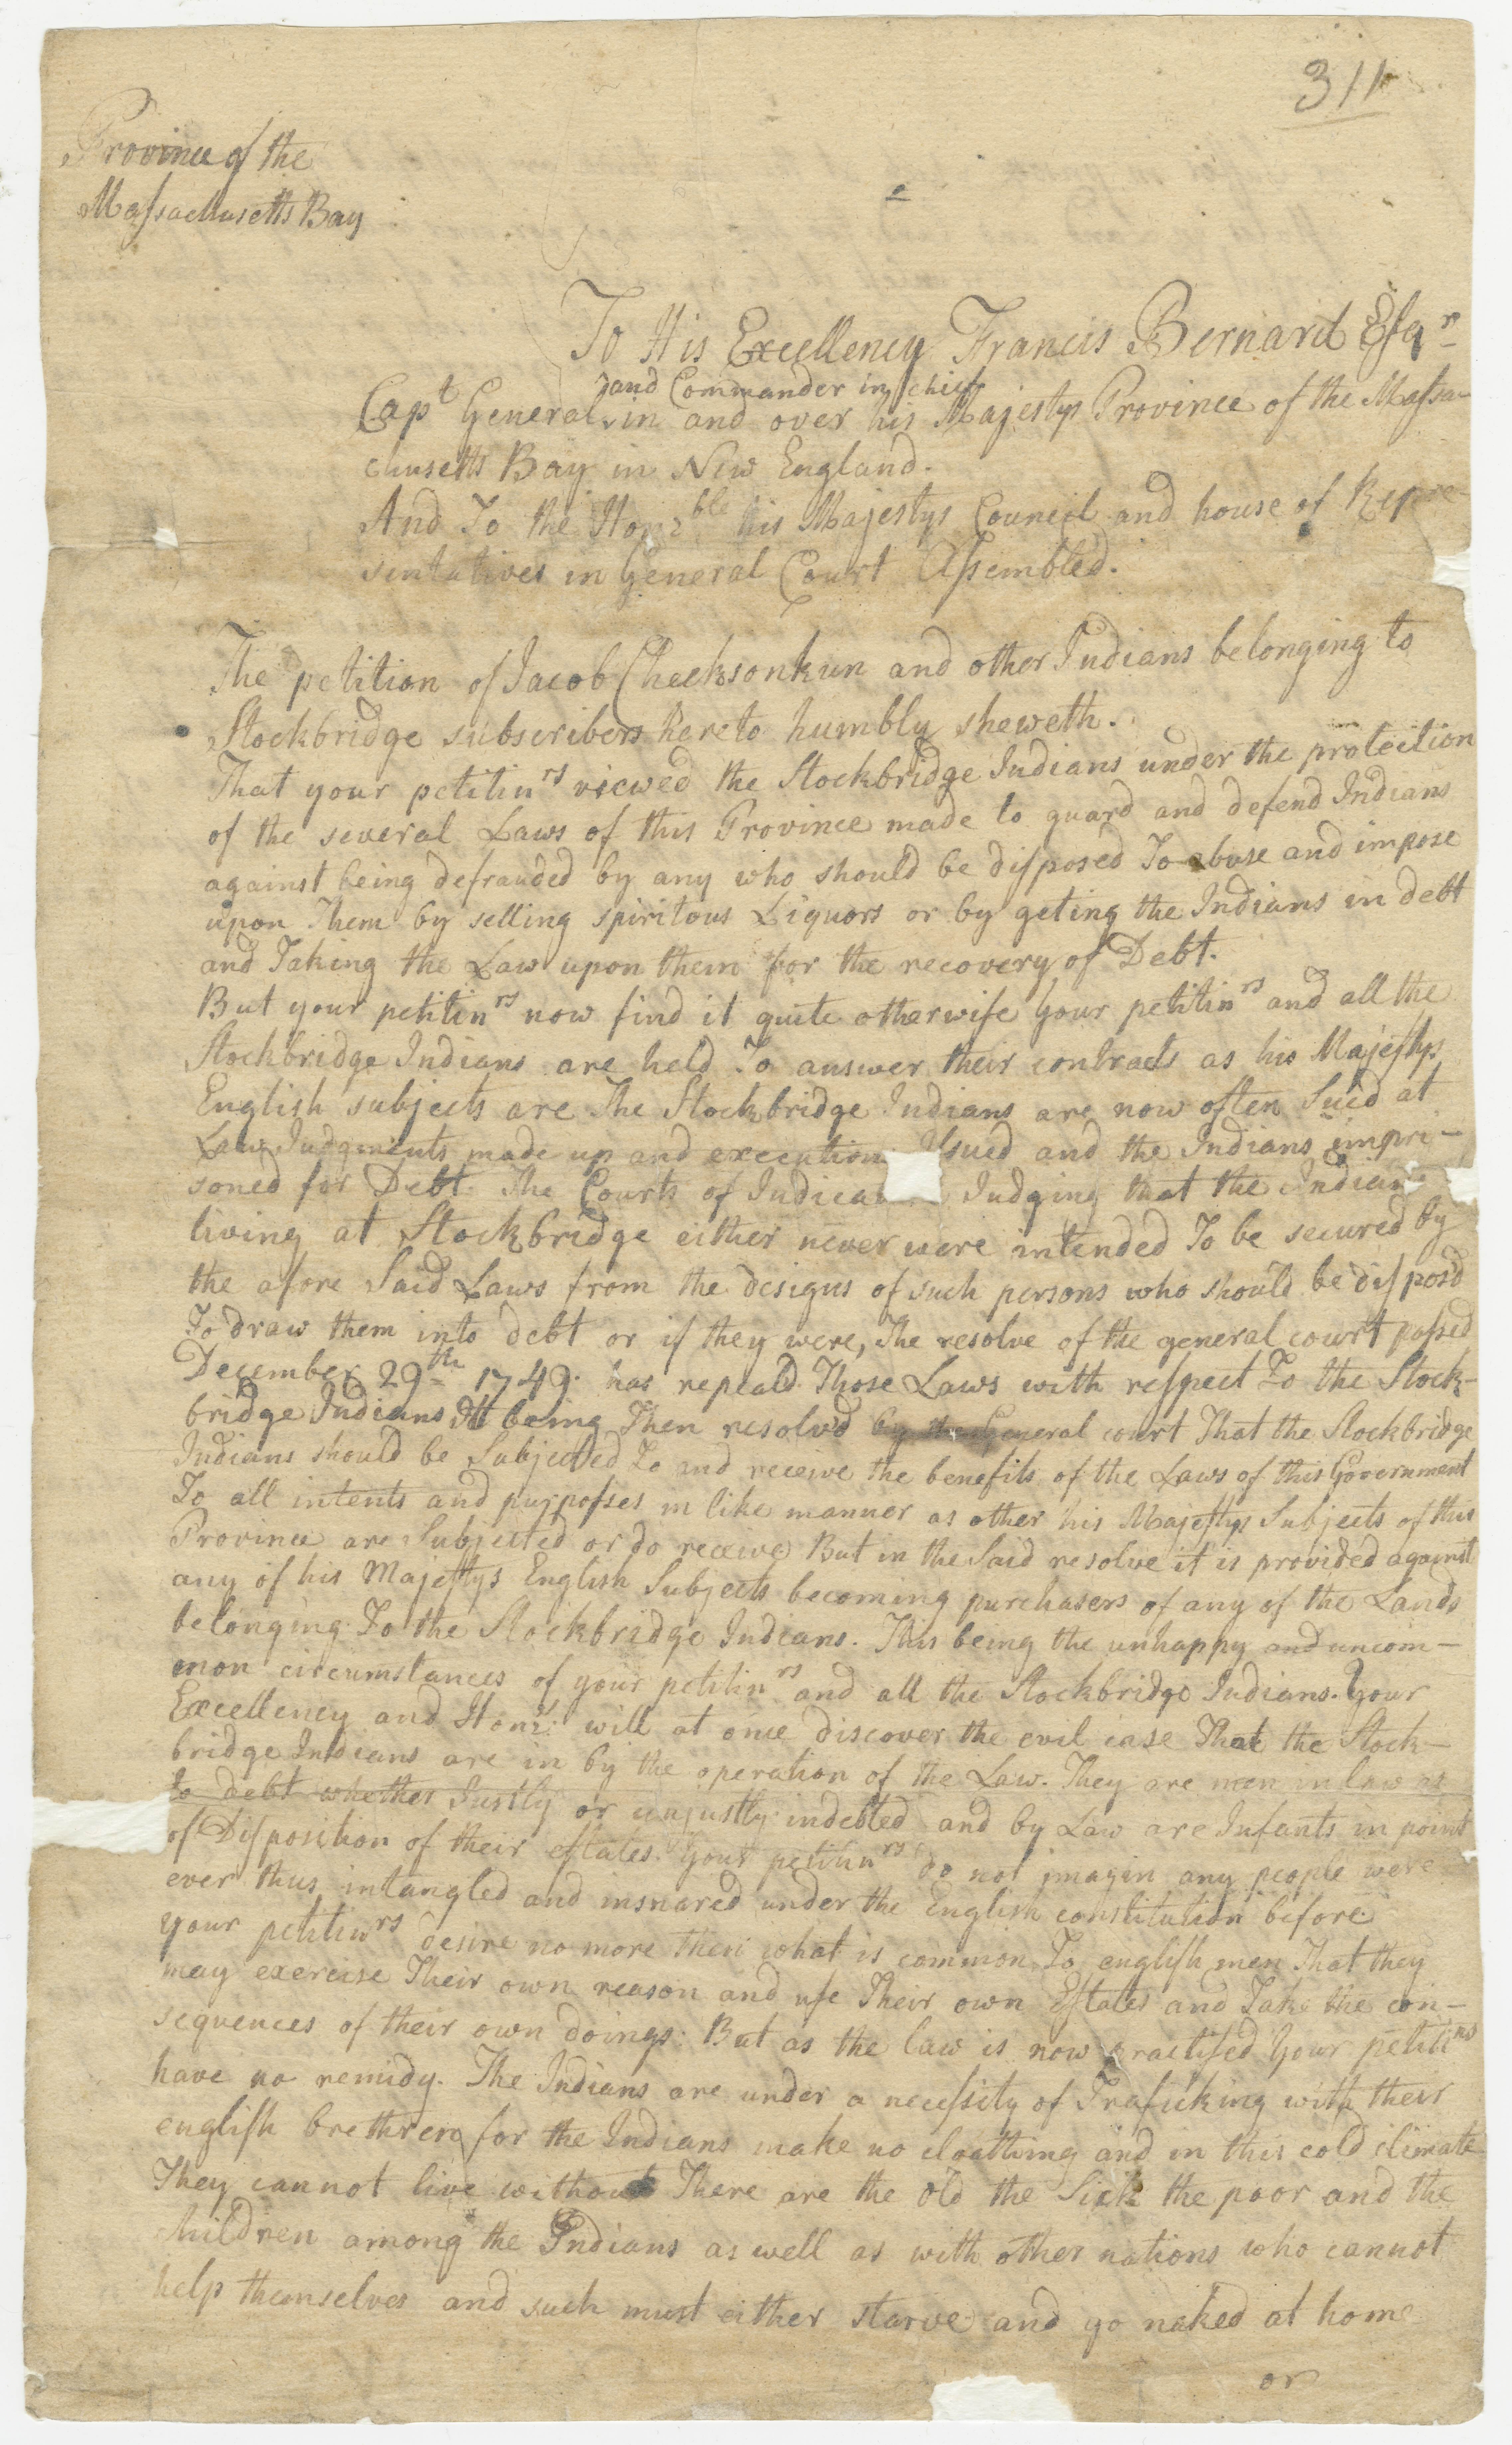 311
Province of the
Massachusetts Bay
To His Excellency Francis Bernard Esqr
and Commander in chief
Capt General in and over his Majestys Province of the Massa-
chusetts Bay in New England.
And To the Honrble his Majestys Council and house of Repre-
sentatives in General Court Assembled.
The petition of Jacob Cheeksonkun and other Indians belonging to
Stockbridge subscribers hereto humbly sheweth.
That your petitinrs viewed the Stockbridge Indians under the protection
of the several Laws of this Province made to guard and defend Indians
against being defrauded by any who should be disposed To abuse and impose
upon Them by selling spiritous Liquors or by geting the Indians in debt
and Taking the Law upon them for the recovery of Debt.
But your petitinrs now find it quite otherwise your petitinrs and all the
Stockbridge Indians are held To answer their contracts as his Majestys
English subjects are The Stockbridge Indians are now often Sued at
Law Judgments made up and execution Issued and the Indians impri-
soned for Debt. The Courts of Judica Judging that the Indians
living at Stockbridge either never were intended To be secured by
the afore Said Laws from the designs of such persons who should be disposd
To draw them into debt or if they were, The resolve of the general court passed
December 29th 1749. has repeald Those Laws with respect To the Stock-
bridge Indians It being Then resolvd by the General court That the Stockbridge
Indians should be Subjected To and receive the benefits of the Laws of this Government
To all intents and purposses in like manner as other his Majestys Subjects of this
Province are Subjected or do receive But in the Said resolve it is provided against
any of his Majestys English Subjects becoming purchasers of any of the Lands
belonging To the Stockbridge Indians. This being the unhappy and uncom-
mon circumstances of your petitinrs and all the Stockbridge Indians. Your
Excellency and Honrs will at once discover the evil case That the Stock-
bridge Indians are in by the operation of the Law. They are men in law as
to debt whether Justly or unjustly indebted and by Law are Infants in point
of Disposition of their estates. Your petitinrs do not imagin any people were
ever thus intangled and insnared under the English constitution before
your petitinrs desire no more then what is common To english men That they
may exercise Their own reason and use Their own Estates and Take the con-
sequences of their own doings: But as the law is now practised Your petitinrs
have no remidy. The Indians are under a necessity of Traficking with their
english brethren for the Indians make no cloathing and in this cold climate
They cannot live without There are the old the Sick the poor and the
children among the Indians as well as with other nations who cannot
help themselves and such must either starve and go naked at home
or